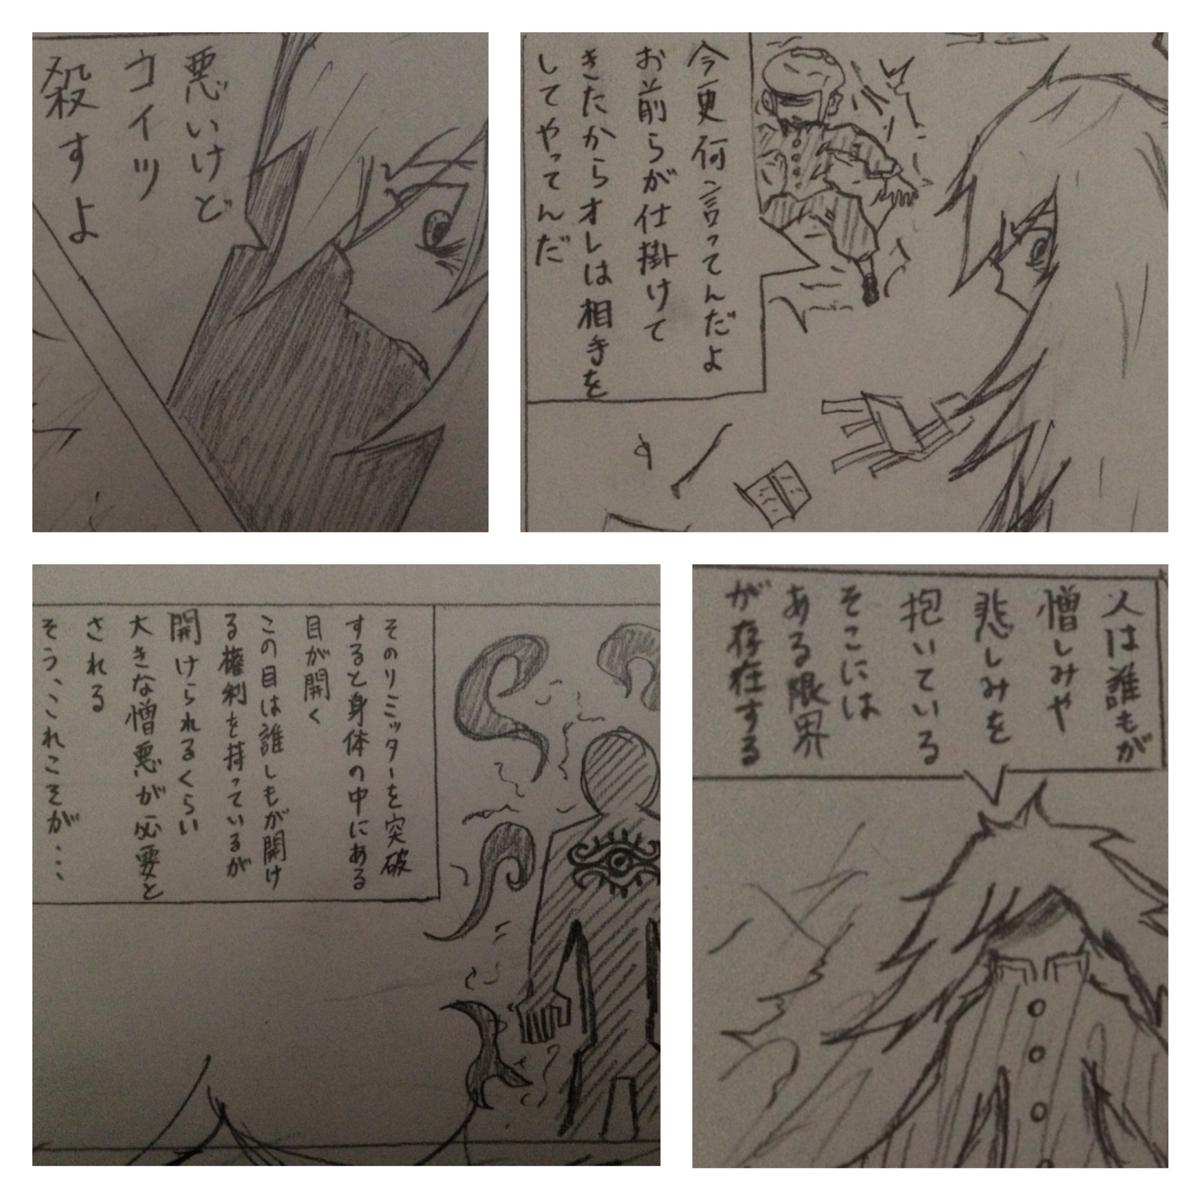 悪いけど
コイツ
殺すよ
今更何言ってんだよ
お前らが仕掛けて
きたからオレは相手を
してやってんだ
人は誰もが
憎しみや
悲しみを
抱いている
そこには
ある限界
が存在する
そのリミッターを突破
すると身体の中にある
目が開く
この目は誰しもが開け
る権利を持っているが
開けられるくらい
大きな憎悪が必要と
される
そう、これこそが・・・